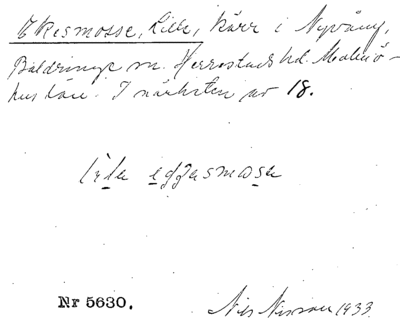 Ekesmosse, Lille, kärr i Nyvång,
Baldringe sn. Herrestads hd. Malmö-
hus län. I närheten av 18.
lila eggasmosa
Nr 5630.
Nils Nilsson 1933.